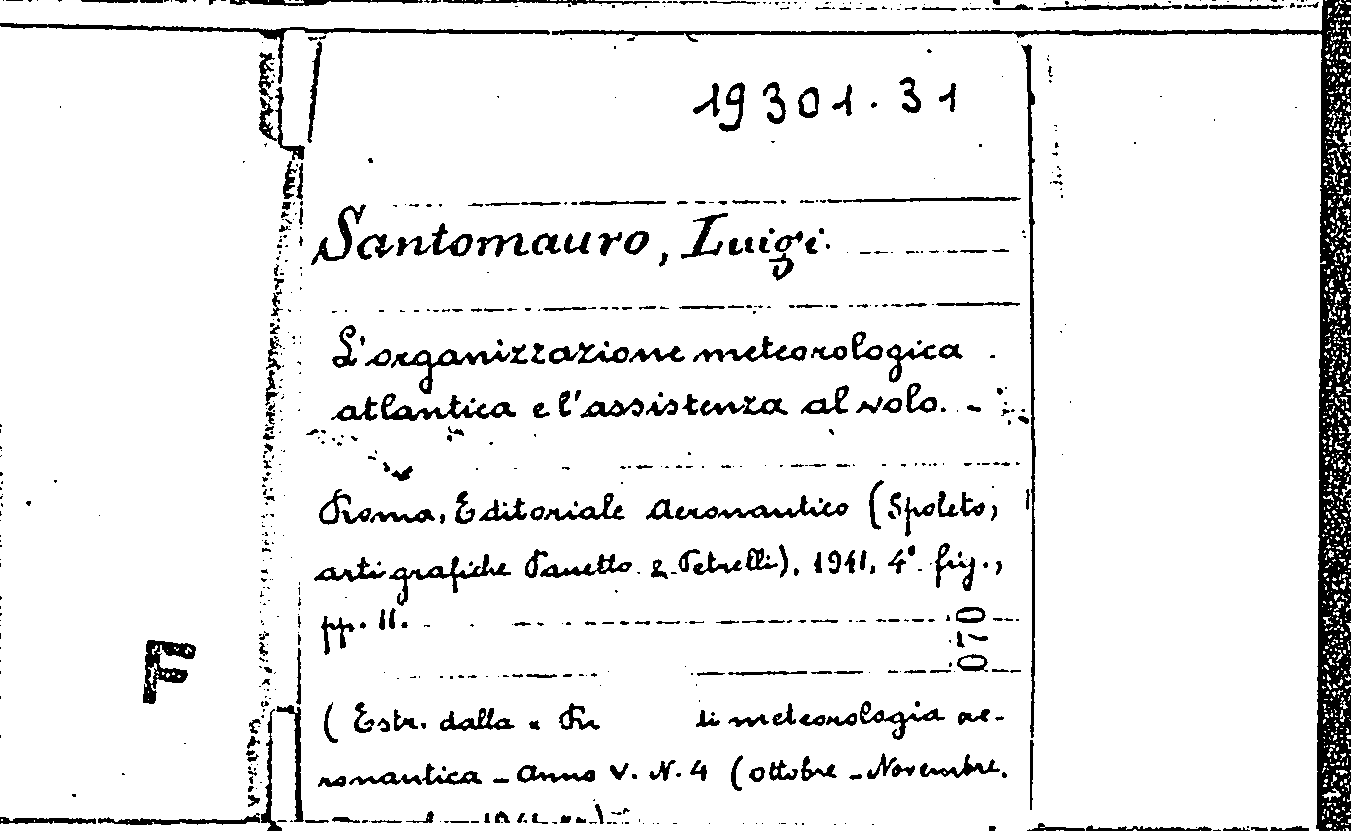 19301.31
Santomauro, Luigi.
L'organizzazione meteorologica
atlantica e l'assistenza al volo. -
Roma, Editoriale Aeronautico (Spoleto,
arti grafiche Panetto & Petrelli), 1941, 4° fig.,
pp. 11.
070
F
( Estr. dalla « di meteorologia ae-
ronautica - Anno V. N. 4 (Ottobre - Novembre,
1941